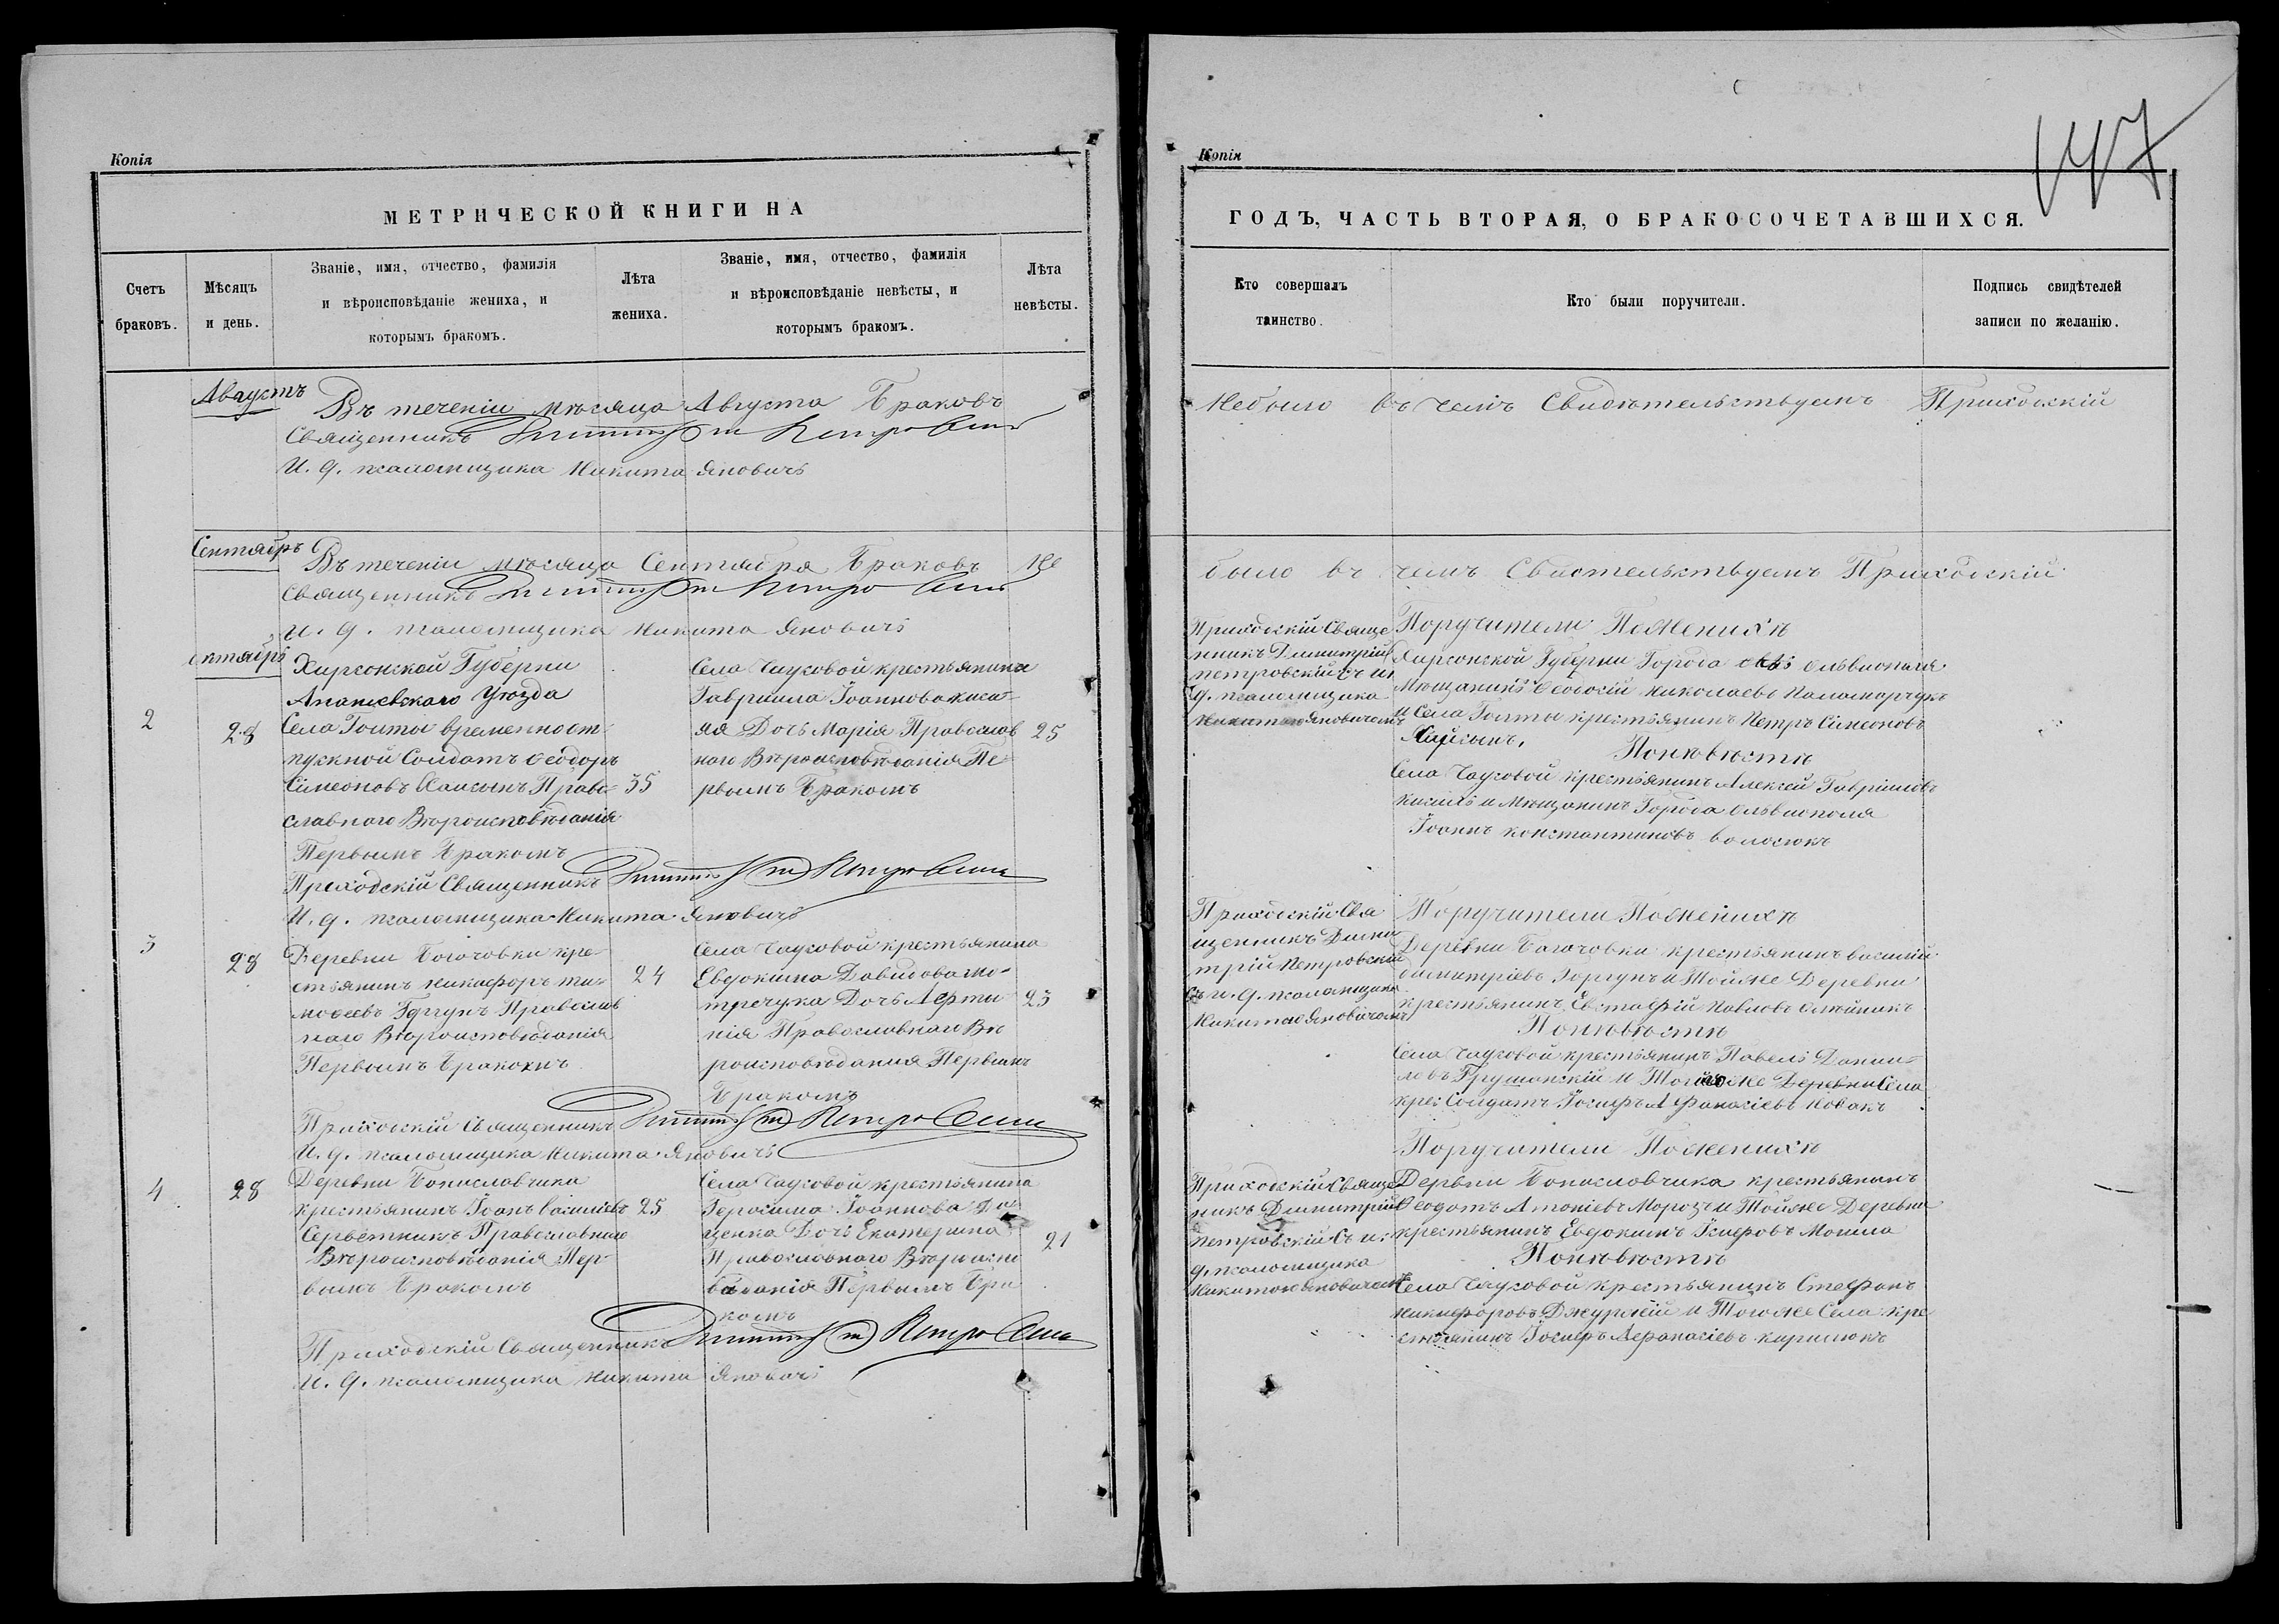 Копія
МЕТРИЧЕСКОЙ КНИГИ НА
Счетъ браковъ.
Мѣсяцъ и день.
Званіе, имя, отчество, фамилія и вѣроисповѣданіе жениха, и которымъ бракомъ.
Лѣта жениха.
Званіе, имя, отчество, фамилія и вѣроисповѣданіе невѣсты, и которымъ бракомъ.
Лѣта невѣсты.
Августъ
Въ теченіи мѣсяца Августа Браковъ
Священникъ Димитрій Петровскій
И. д. псаломщика Никита Яновичъ
Сентябръ
Въ теченіи мѣсяца Сентября Браковъ не
Священникъ Димитрій Петровскій
И. д. псаломщика Никита Яновичъ
октябрь
2
28
Херсонской Губерни
Ананіевскаго Уѣзда
Села Гоиты временноот
пускной Солдатъ Ѳеодоръ
Симеоновъ Хаисынъ Право-
славнаго Вѣроисповѣданія
Первымъ Бракомъ
35
Села Чаусовой крестьянина
Гавриила Іоаннова киси-
ля Дочь Марія Православ
наго Вѣроисповѣданія Пе
рвымъ Бракомъ
25
Приходскій Священникъ Димитрій Петровскій
И. д. псаломщика Никита Яновичъ
3
28
Деревни Богачовки кре-
стьянинъ никифоръ ти-
моѳеевъ Горгунъ Православ
наго Вѣроисповѣданія
Первымъ Бракомъ
24
Села Чаусовой крестьянина
Евдокима Давидова мо-
тречука Дочь
нія Православнаго Вѣ
роисповѣданія Первымъ
Бракомъ
23
Приходскій Священникъ Димитрій Петровскій
И. д. псаломщика Никита Яновичъ
4
28
Деревни Бониславчика
крестьянинъ Іоанъ Василіевъ
Сербетникъ Православнаго
Вѣроисповѣданія Пер-
вымъ Бракомъ
25
Села Чаусовой крестьянина
Герасима Іоаннова
ценка Дочь Екатерина
Православнаго Вѣроиспо
веданія Первымъ Бра
комъ
21
Приходскій Священникъ Димитрій Петровскій
И. д. псаломщика Никита Яновичъ
Копія
147
ГОДЪ, ЧАСТЬ ВТОРАЯ, О БРАКОСОЧЕТАВШИХСЯ.
Кто совершалъ таинство.
Кто были поручители.
Подпись свидѣтелей записи по желанію.
Небыло въ чемъ Свидѣтельствуемъ Приходскій
было въ чемъ Свистельствуемъ Приходскій
Приходскій Свяще
нникъ Димитрій
петровскій съ и
д. псаломщика
Никитою Яновичемъ
Поручители Поженихѣ
Херсонской Губерни Города Ольвиополя
Мѣщанинъ Ѳеодосій николаевъ Паламарчукъ
и Села Гоиты крестьянинъ Петръ Симеоновъ
Хаисынъ,
Поневѣстѣ
Села Чаусовой крестьянинъ Алексей Гавриловъ
кисиль и Мѣщанинъ Города Ольвиополя
Іоаннъ константиновъ волосюкъ
Приходскій Свя
щенникъ Дими
трій Петровскій
съ и. д. псаломщика
Никитою Яновичемъ
Поручители Поженихѣ
Деревни Багачовки крестьянинъ василій
димитріевъ Горгунъ и Тойже Деревни
крестьянинъ Евстафій Павловъ Олѣйникъ
Поневѣстѣ
Села Чаусовой крестьянинъ Павелъ Дании-
ловъ Грушанскій и Тогоже Деревни Села
крес Солдатъ Іосифъ Афанасіевъ Новакъ
Приходскій Свяще
никъ Димитрій
петровскій съ и.
д. псаломщика
Никитою Яновичемъ
Поручители Поженихѣ
Дервни Бониславчика крестьянинъ
Ѳеодотъ Антоніевъ Морозъ и Тойже Деревни
крестьянинъ Евдокимъ Мошла
Поневѣстѣ
Села Чаусовой крестьянинъ Стефанъ
никифоровъ Джурскій и Тогоже Села кре
стьянинъ Іосифъ Афанасіевъ кирилюкъ